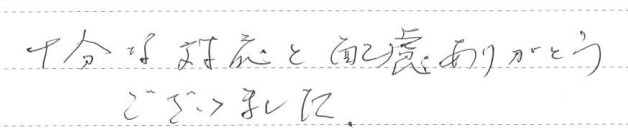 十分な対応と配慮ありがとう
ございました.